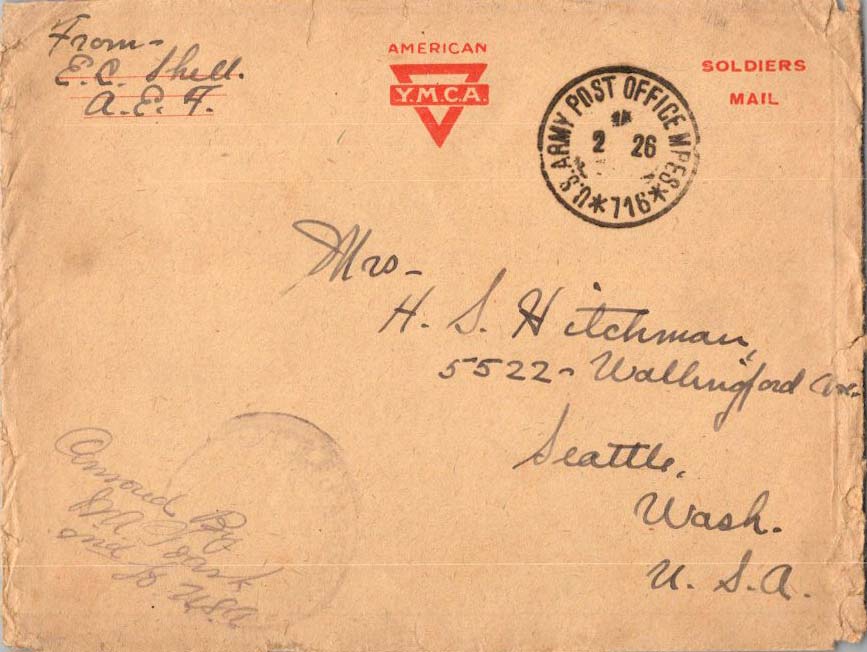 From-
E. C. Shell.
A. E. F.
AMERICAN
Y.M.C.A.
SOLDIERS
MAIL
U.S. ARMY POST OFFICE M.P.E.S.
2 26
*716*
Mrs-
H. S. Hitchman,
5522- Wallingford Ave.
Seattle,
Wash.
U. S. A.
By
U.S.A.